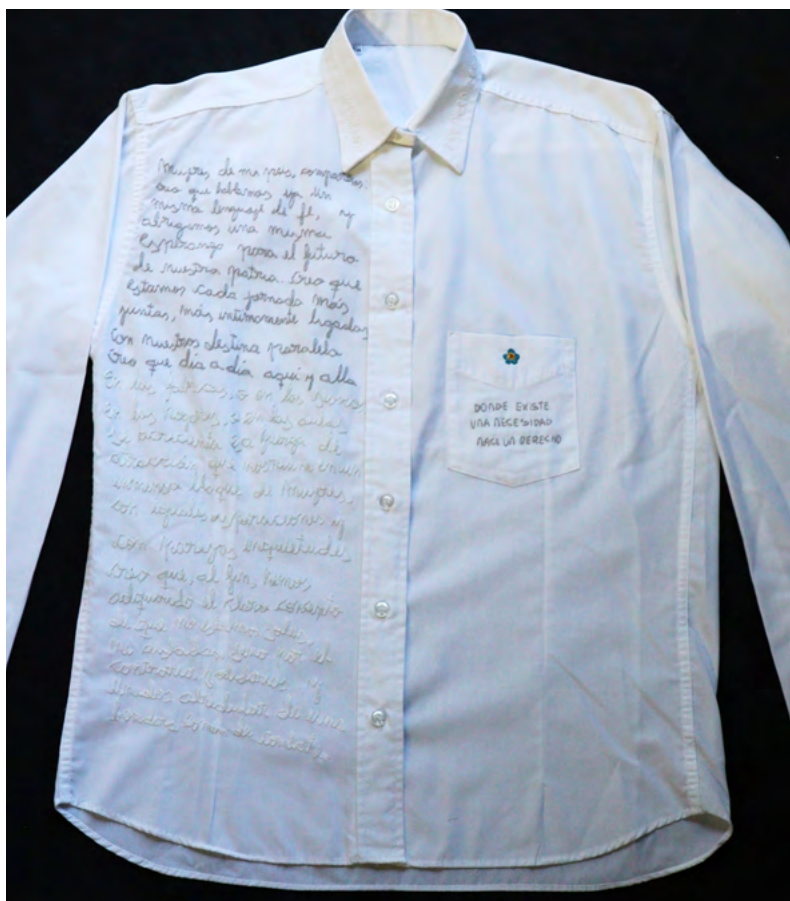 Mujeres de mi pais, compañeras:
creo que hablamos ya un
mismo lenguaje de fe, y
abrigamos una misma
Esperanza para el futuro
de nuestra patria. Creo que
estamos cada jornada más
juntas, más intimamente ligadas
Con nuestro destino paralelo
Creo que dia a dia aqui y alla
En las fabricas, o en los surcos
En los hogares, o en las aulas
se acrecienta la fuerza de
atracción que nos reune en un
inmenso bloque de mujeres,
con iguales aspiraciones y
con parejas inquietudes
Creo que, al fin, hemos
adquirido el claro concepto
de que no estamos solas,
sino por el
contrario, y
alrededor de una
bandera
DONDE EXISTE
UNA NECESIDAD
NACE UN DERECHO